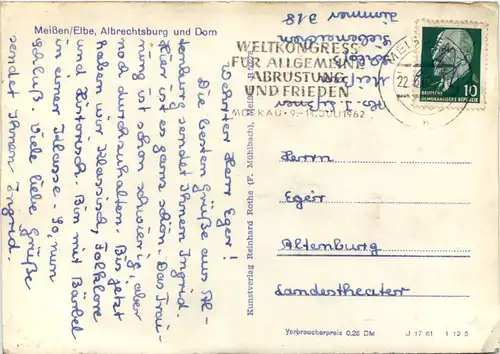 Meißen/Elbe, Albrechtsburg und Dom
Wehrter Herr Eger!
Die besten Grüße aus Al-
tenburg sendet Ihnen Ingrid.
Hier ist es ganz schön. Das Trai-
ning ist schon schwierig, aber
noch durchzuhalten. Bis jetzt
haben wir Klassisch, Folklore
und Historisch. Bin mit Bärbel
in einer Klasse. So, nun
Schluß. Viele liebe Grüße
sendet Ihnen Ingrid.
Kunstverlag Reinhard Rothe (F. Mühlbach), Meißen
Meißen
Siebeneichen
Zimmer 318
WELTKONGRESS
FÜR ALLGEMEINE
ABRÜSTUNG
UND FRIEDEN
MOSKAU · 9.-14. JULI 1962
MEISSEN
22
DEUTSCHE
DEMOKRATISCHE REPUBLIK
10
Herrn
Eger
Altenburg
Landestheater
Verbraucherpreis 0,25 DM
J 17 61 1 12 5